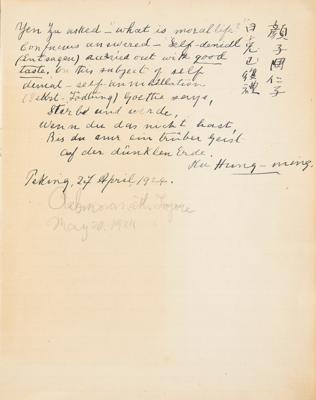 Yen Zu asked – "what is moral life?"
Confucius answered – "Self-denial
(Entsagen) carried out with good
taste. On this subject of self
denial – self-annihilation
(Selbst-Tödtung) Goethe says,
Sterbe und werde,
Wenn du das nicht hast,
Bis du nur ein trüber Geist
auf der dunklen Erde.
Ku Hung-ming.
Peking, 27 April 1924.
May 20. 1924
顏子問仁子
曰克己復禮